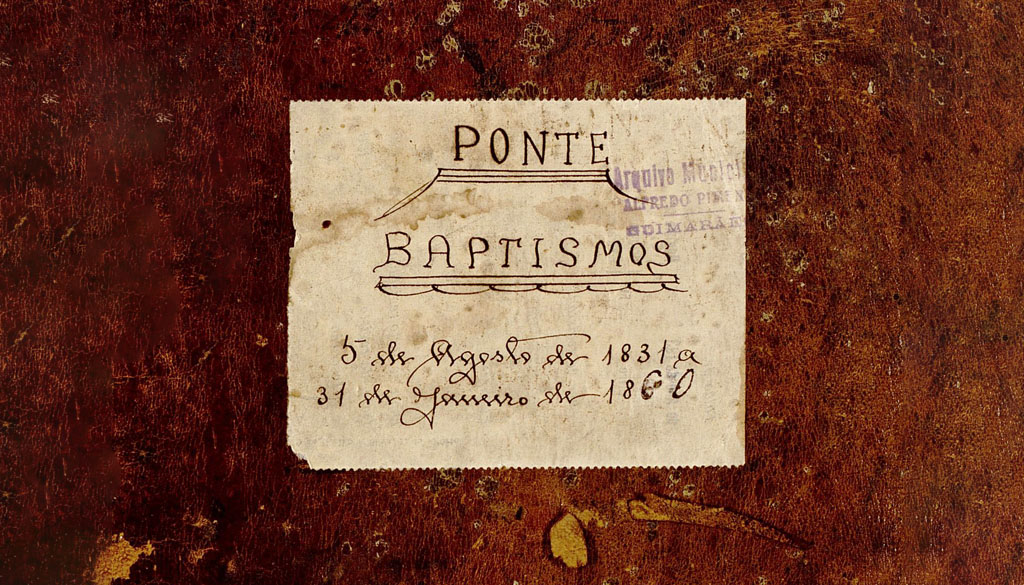 PONTE
Arquivo
ALFREDO
GUIMARÃE
BAPTISMOS
5 de Agosto de 1831 a
31 de Janeiro de 1860